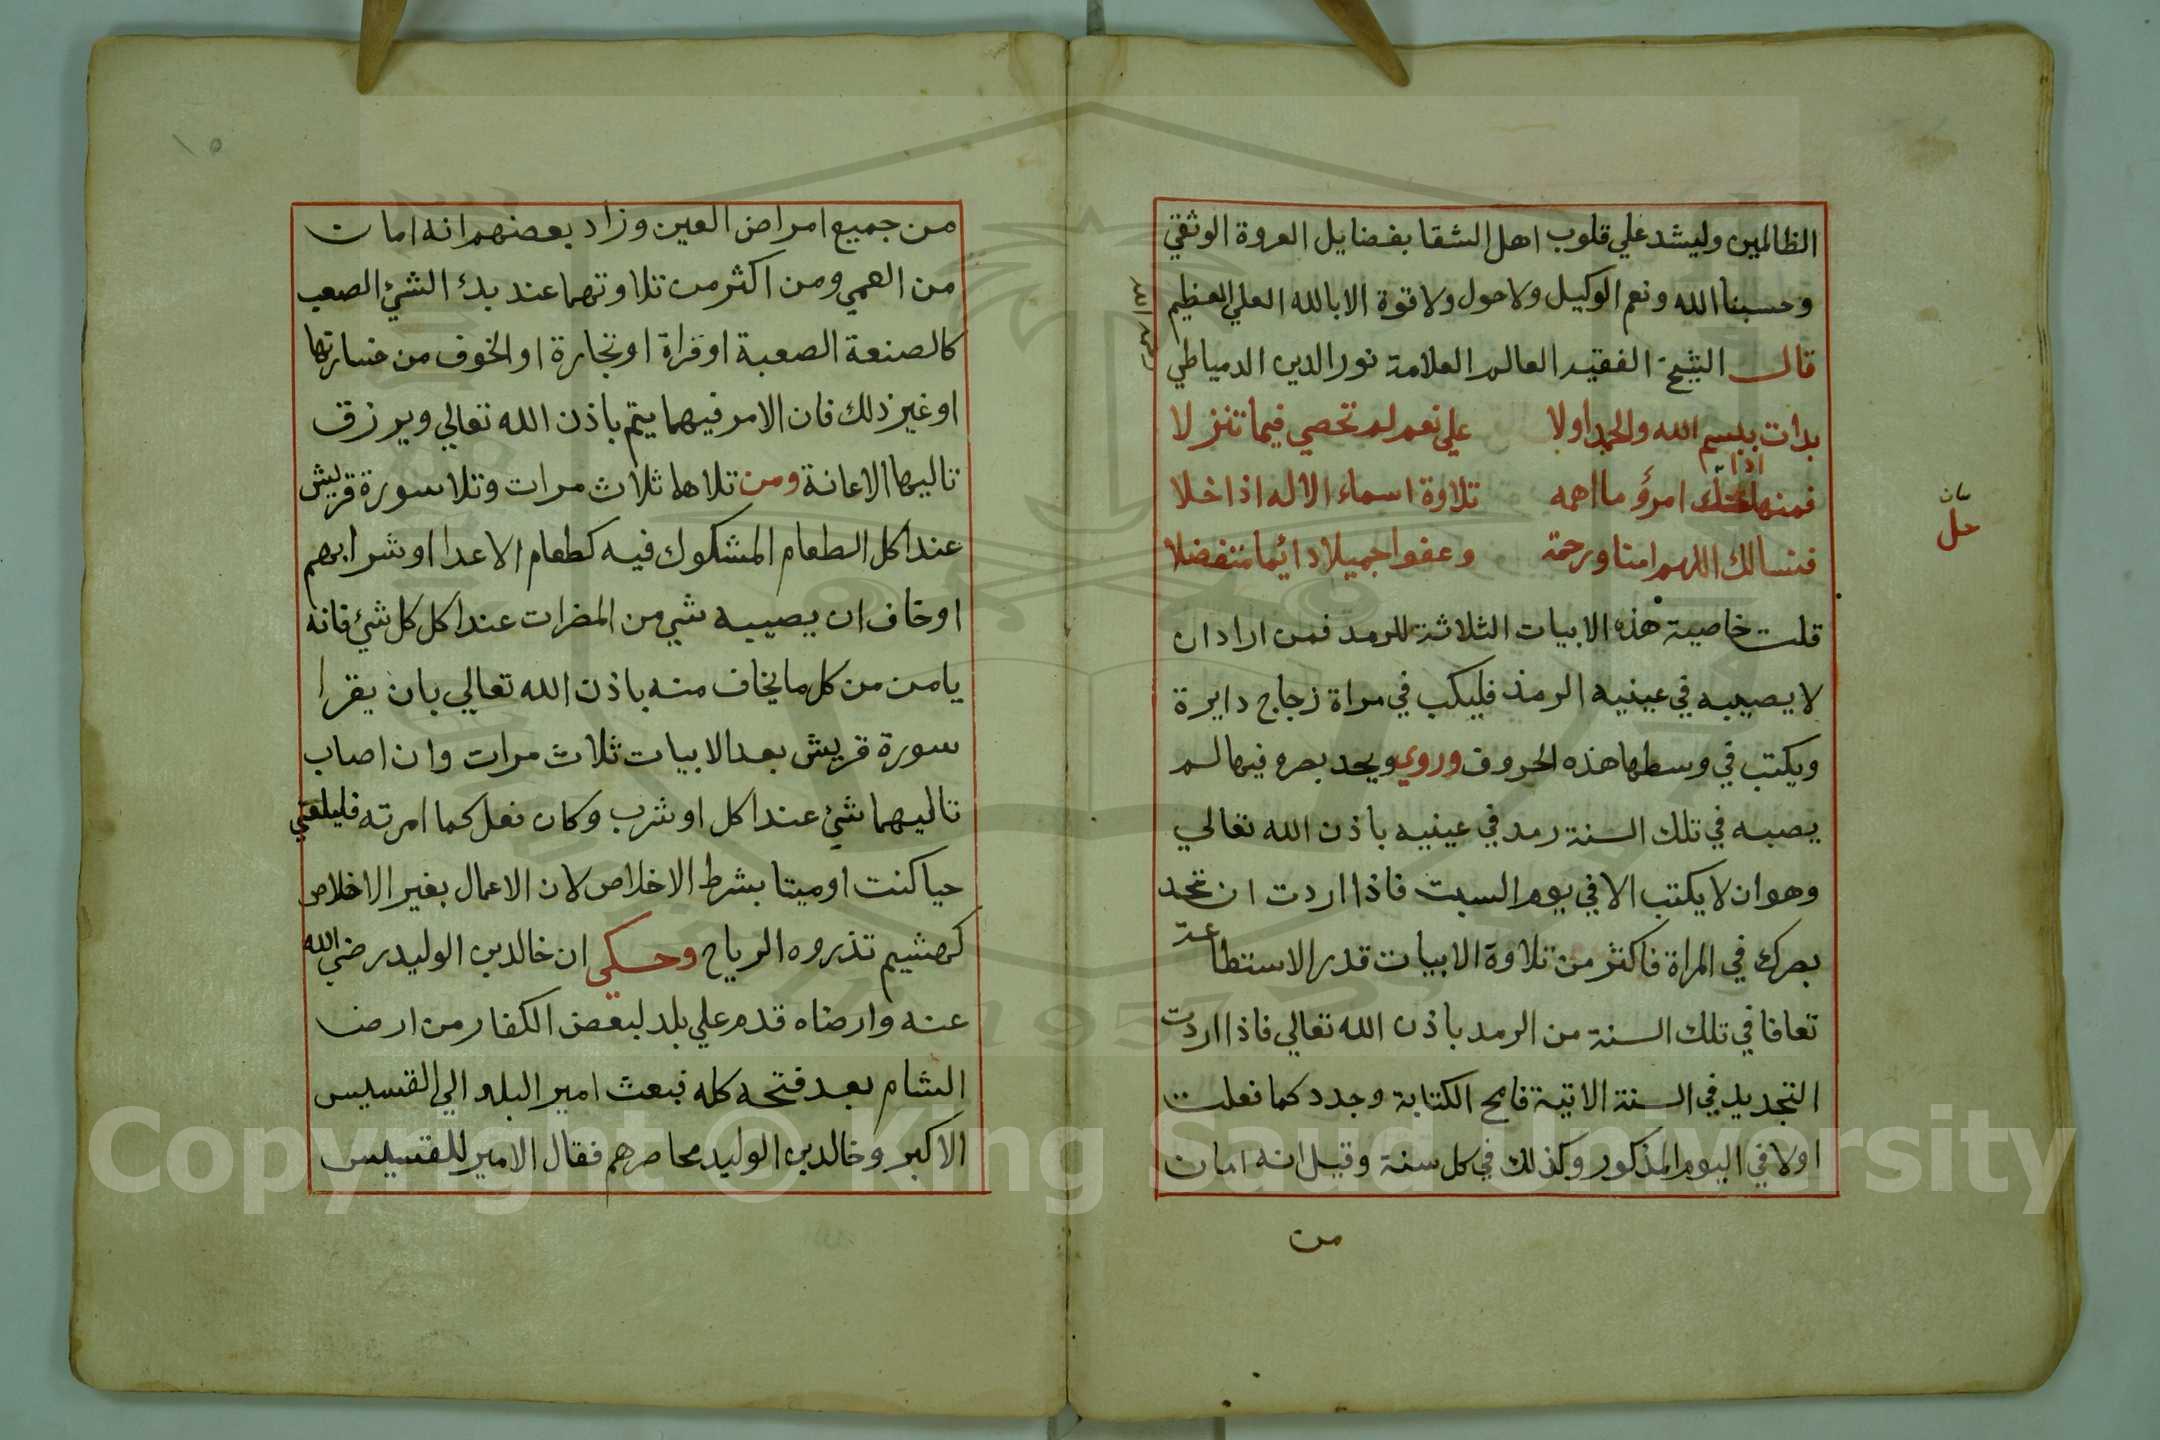 الظالمين وليشد علي قلوب اهل الشقا بفضايل العروة الوثقي
وحسبنا الله ونعم الوكيل ولاحول ولاقوة الابالله العلي العظيم
قال الشيخ الفقيه العالم العلامة نور الدين الدمياطي
رحمه الله
بدات ببسم الله والحمد اولا علي نعم لم تحصي فيما تنزلا
فمنها اذا امرؤ ما اهمه تلاوة اسماء الاله اذا خلا
فنسالك اللهم امنا ورحمة وعفوا جميلا دائما متفضلا
قلت خاصية هذه الابيات الثلاثة للرمد فمن اراد ان
لا يصيبه في عينيه الرمد فليكب في مراة زجاج دايرة
ويكتب في وسطها هذه الحروف وروي ويحد بصره فيها لم
يصبه في تلك السنة رمد في عينيه باذن الله تعالي
وهو ان لا يكتب الا في يوم السبت فاذا اردت ان تحد
بصرك في المراة فاكثر من تلاوة الابيات قدر الاستطاعة
تعافا في تلك السنة من الرمد باذن الله تعالي فاذا اردت
التجديد في السنة الاتية فامح الكتابة وجدد كما فعلت
اولا في اليوم المذكور وكذلك في كل سنة وقيل انه امان
من
حل
من جميع امراض العين وزاد بعضهم انه امان
من العمي ومن اكثر من تلاوتهما عند بدئ الشئ الصعب
كالصنعة الصعبة او قراة او تجارة او الخوف من خسارتها
او غير ذلك فان الامر فيهما يتم باذن الله تعالي ويرزق
تاليها الاعانة ومن تلاها ثلاث مرات وتلا سورة قريش
عند اكل الطعام المشكوك فيه كطعام الاعدا او شرابهم
او خاف ان يصيبه شي من المضرات عند اكل كل شئ فانه
يامن من كل ما يخاف منه باذن الله تعالي بان يقرا
سورة قريش بعد الابيات ثلاث مرات وان اصاب
تاليهما شئ عند اكل او شرب وكان فعل كما امرته فليلعني
حيا كنت او ميتا بشرط الاخلاص لان الاعمال بغير الاخلاص
كهشيم تذروه الرياح وحكي ان خالد بن الوليد رضي الله
عنه وارضاه قدم علي بلد لبعض الكفار من ارض
الشام بعد فتحه كله فبعث امير البلد الي القسيس
الاكبر وخالد بن الوليد محاصرهم فقال الامير للقسيس
١٥
Copyright © King Saud University
1957